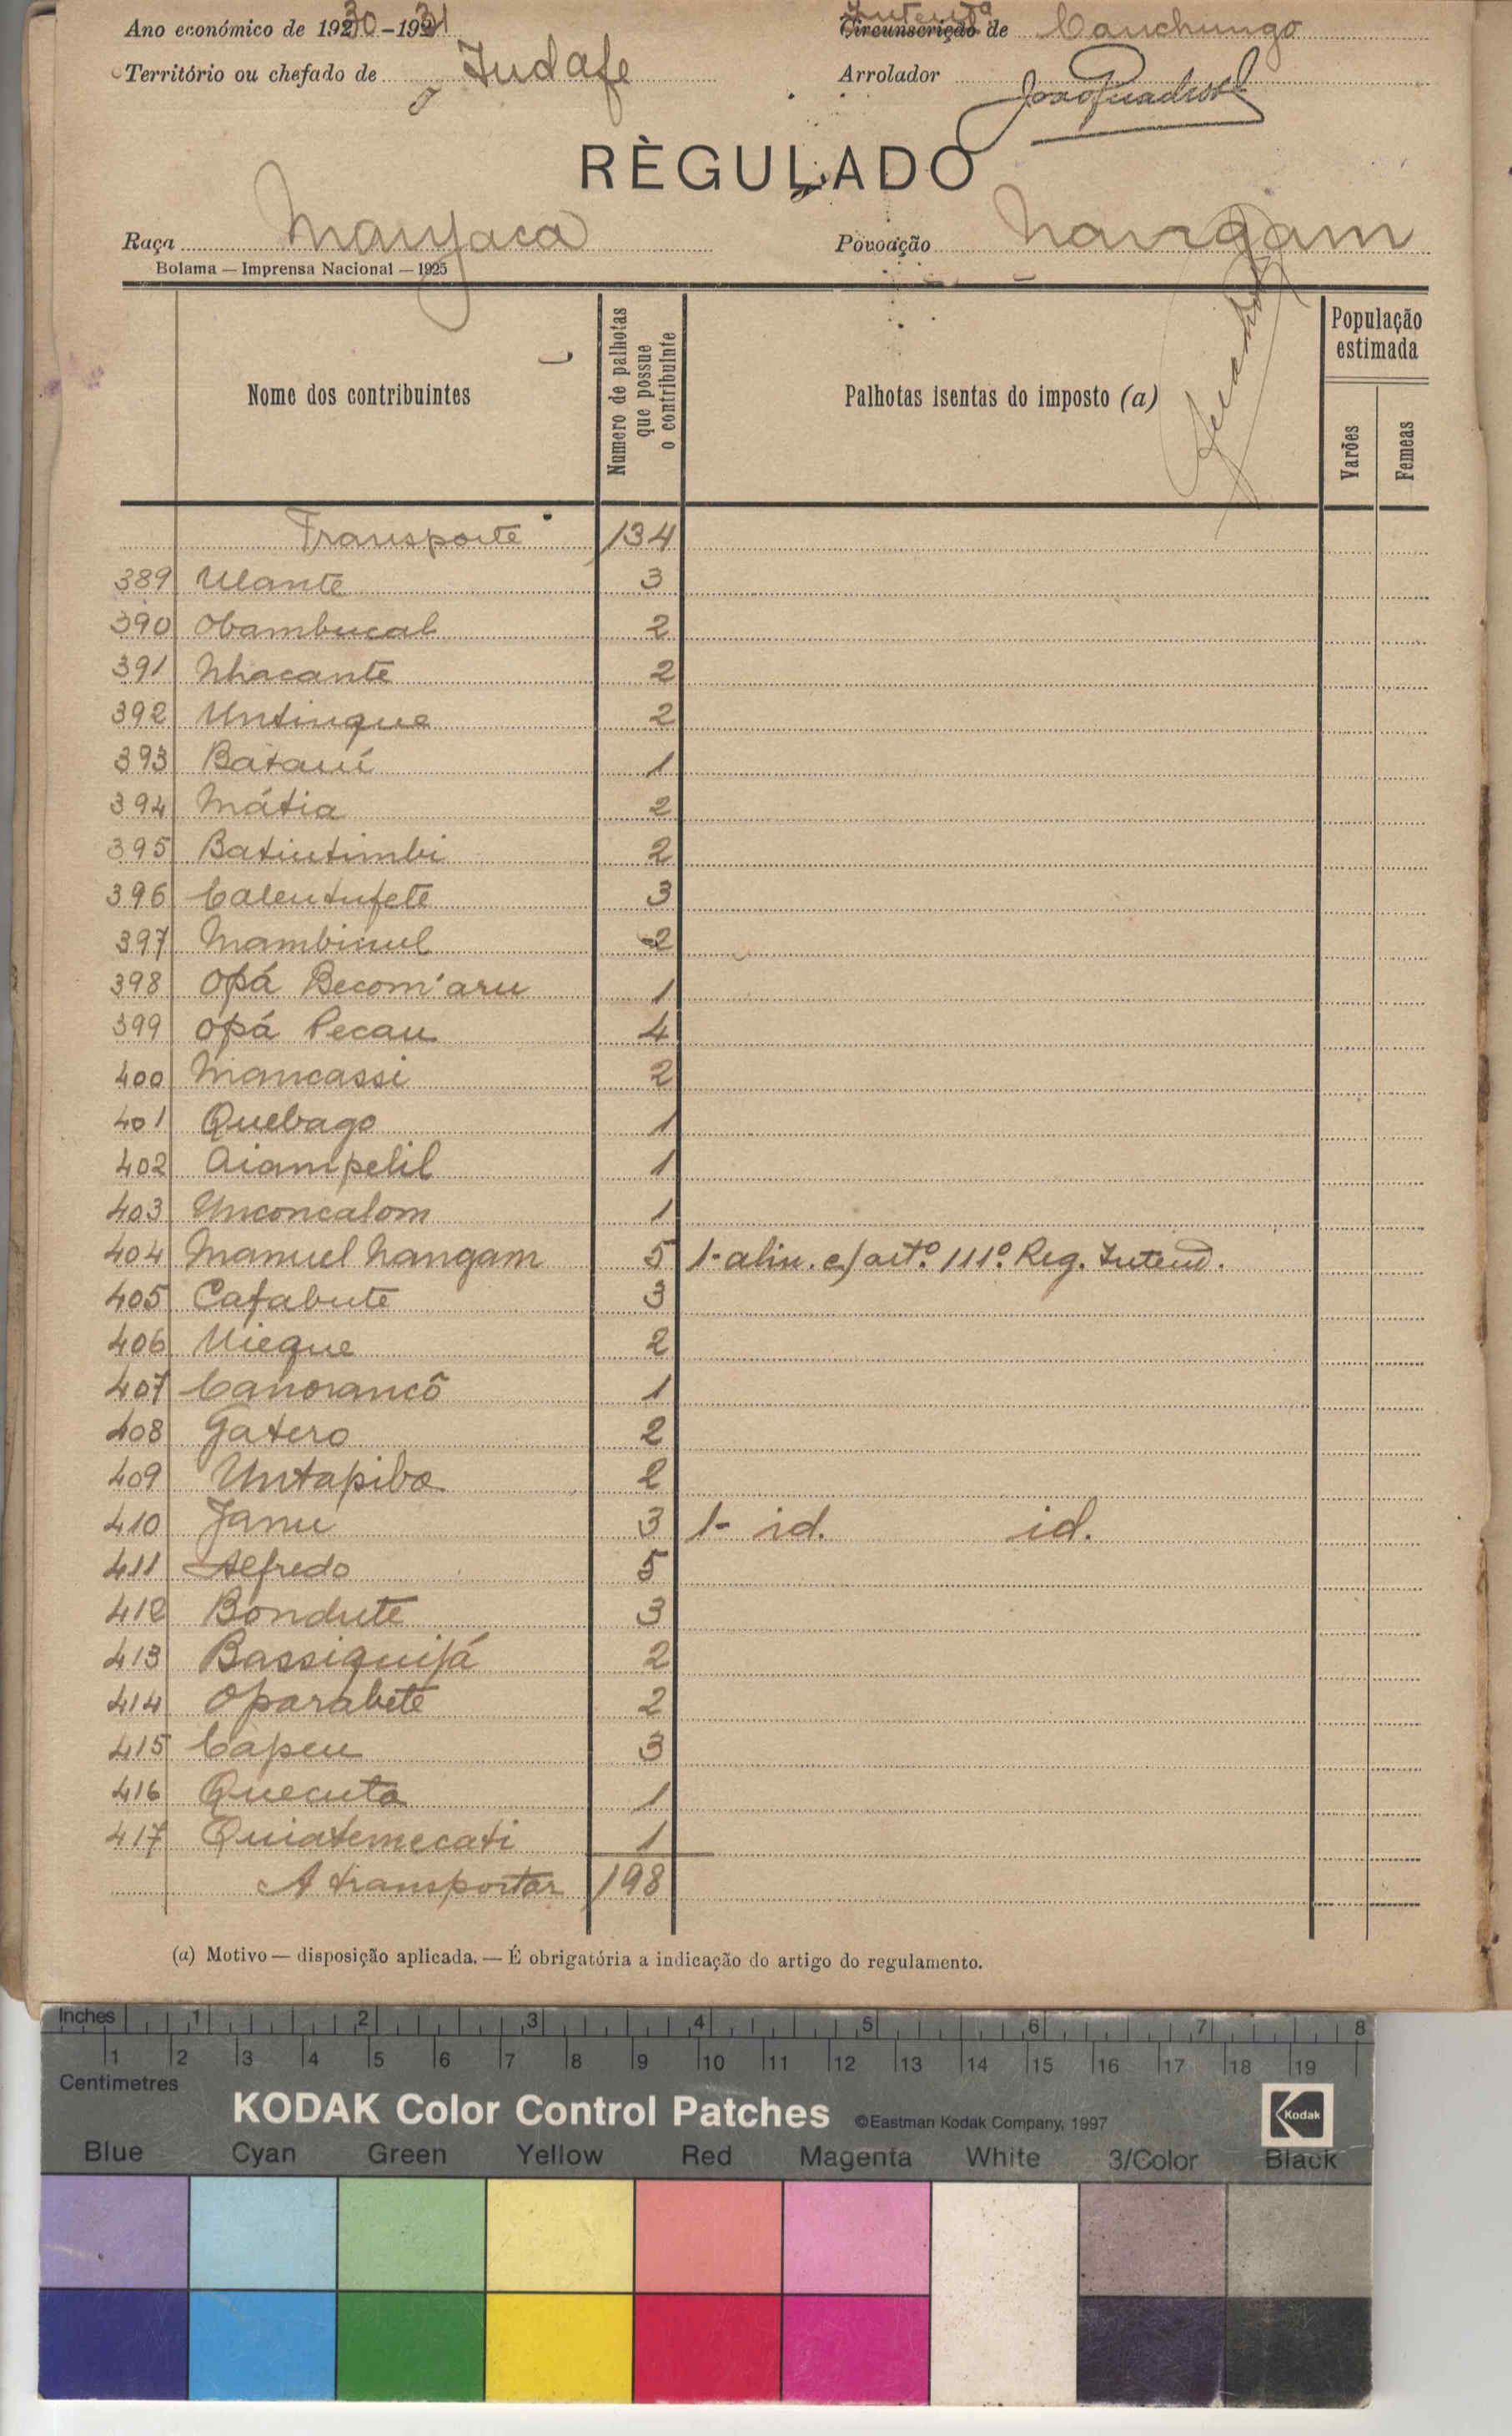 Ano económico de 1930-1931
Intend.ª de Canchungo
Território ou chefado de Indafe
Arrolador
RÈGULADO
Raça Manjaca
Povoação Nangam
Bolama — Imprensa Nacional — 1925
Nome dos contribuintes
Numero de palhotas que possue o contribuinte
Palhotas isentas do imposto (a)
População estimada
Varões
Femeas
Transporte 134
389 Ulante 3
390 Obambucal 2
391 Nhacante 2
392 Untinque 2
393 Batauí 1
394 Mátia 2
395 Batiutimbi 2
396 Calentufete 3
397 Mambinul 2
398 Opá Becom'aru 1
399 Opá Pecau 4
400 Mancassi 2
401 Quebago 1
402 Aiampelil 1
403 Unconcalom 1
404 Manuel Nangam 5 1- alin. e) art.º 111.º Reg. Intend.
405 Cafabute 3
406 Uieque 2
407 Canorancô 1
408 Gatero 2
409 Untapiba 2
410 Janu 3 1- id. id.
411 Alfredo 5
412 Bondute 3
413 Bassiquijá 2
414 Oparabete 2
415 Capeu 3
416 Quecuta 1
417 Quiatemecati 1
A transportar 198
(a) Motivo — disposição aplicada. — É obrigatória a indicação do artigo do regulamento.
Inches 1 2 3 4 5 6 7 8
1 2 3 4 5 6 7 8 9 10 11 12 13 14 15 16 17 18 19
Centimetres
KODAK Color Control Patches ©Eastman Kodak Company, 1997 Kodak
Blue Cyan Green Yellow Red Magenta White 3/Color Black